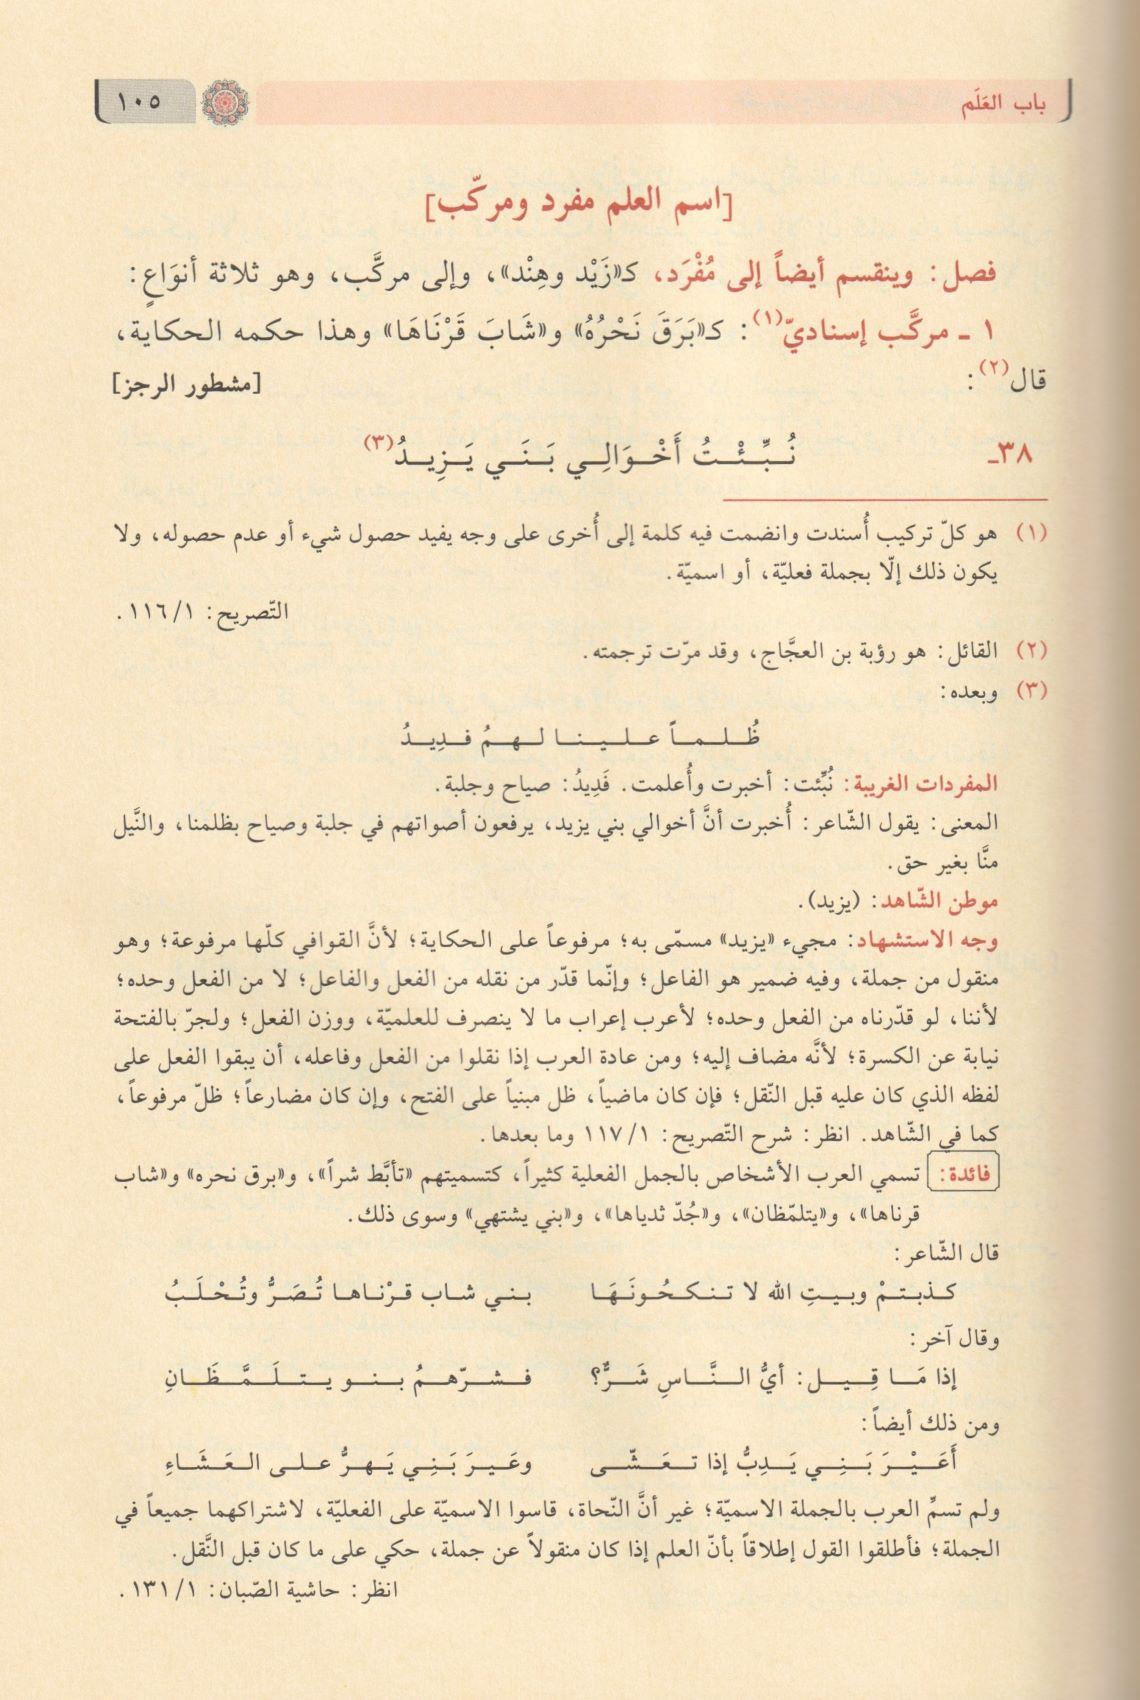 باب العَلَم
١٠٥
[اسم العلم مفرد ومركّب]
فصل: وينقسم أيضاً إلى مُفْرَد، كـ«زَيْد وهِنْد»، وإلى مركَّب، وهو ثلاثة أنوَاعٍ:
١ ـ مركَّب إسناديّ(١): كـ«بَرَقَ نَحْرُهُ» و«شَابَ قَرْنَاهَا» وهذا حكمه الحكاية،
قال(٢): [مشطور الرجز]
٣٨ـ نُـبِّـئْـتُ أَخْـوَالِـي بَـنَـي يَـزِيـدُ(٣)
(١) هو كلّ تركيب أُسندت وانضمت فيه كلمة إلى أُخرى على وجه يفيد حصول شيء أو عدم حصوله، ولا
يكون ذلك إلّا بجملة فعليّة، أو اسميّة.
التّصريح: ١/ ١١٦.
(٢) القائل: هو رؤبة بن العجَّاج، وقد مرّت ترجمته.
(٣) وبعده:
ظُـلـمـاً عـلـيـنـا لـهـمُ فـدِيـدُ
المفردات الغريبة: نُبِّئت: أخبرت وأُعلمت. فَدِيدُ: صياح وجلبة.
المعنى: يقول الشّاعر: أُخبرت أنَّ أخوالي بني يزيد، يرفعون أصواتهم في جلبة وصياح بظلمنا، والنَّيل
منَّا بغير حق.
موطن الشّاهد: (يزيد).
وجه الاستشهاد: مجيء «يزيد» مسمّى به؛ مرفوعاً على الحكاية؛ لأنَّ القوافي كلّها مرفوعة؛ وهو
منقول من جملة، وفيه ضمير هو الفاعل؛ وإنّما قدّر من نقله من الفعل والفاعل؛ لا من الفعل وحده؛
لأننا، لو قدّرناه من الفعل وحده؛ لأعرب إعراب ما لا ينصرف للعلميّة، ووزن الفعل؛ ولجرّ بالفتحة
نيابة عن الكسرة؛ لأنَّه مضاف إليه؛ ومن عادة العرب إذا نقلوا من الفعل وفاعله، أن يبقوا الفعل على
لفظه الذي كان عليه قبل النّقل؛ فإن كان ماضياً، ظل مبنياً على الفتح، وإن كان مضارعاً؛ ظلّ مرفوعاً،
كما في الشّاهد. انظر: شرح التّصريح: ١/ ١١٧ وما بعدها.
فائدة: تسمي العرب الأشخاص بالجمل الفعلية كثيراً، كتسميتهم «تأبَّط شراً»، و«برق نحره» و«شاب
قرناها»، و«يتلمّظان»، و«جُدّ ثدياها»، و«بني يشتهي» وسوى ذلك.
قال الشّاعر:
كـذبـتـمْ وبـيـتِ الله لا تـنـكـحُـونَـهَـا بـنـي شـاب قـرْنـاهـا تُـصَـرُّ وتُـحْـلَـبُ
وقال آخر:
إذا مَـا قِـيـل: أيُّ الـنَّـاسِ شَـرٌّ؟ فـشـرّهـمُ بـنـو يـتـلَـمَّـظَـانِ
ومن ذلك أيضاً:
أَعَـيْـرَ بَـنِـي يَـدِبُّ إذا تـعَـشّـى وعَـيـرَ بَـنِـي يَـهـرُّ عـلـى الـعَـشَـاءِ
ولم تسمِّ العرب بالجملة الاسميّة؛ غير أنَّ النّحاة، قاسوا الاسميّة على الفعليّة، لاشتراكهما جميعاً في
الجملة؛ فأطلقوا القول إطلاقاً بأنّ العلم إذا كان منقولاً عن جملة، حكي على ما كان قبل النَّقل.
انظر: حاشية الصّبان: ١/ ١٣١.